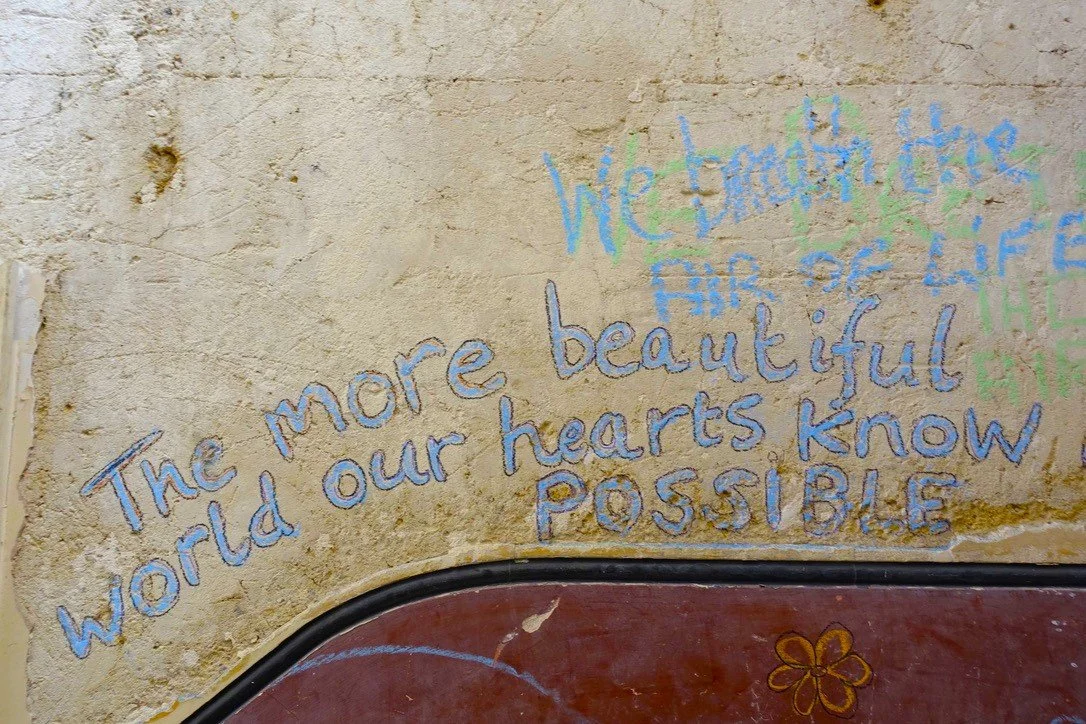 We breath the
AIR OF LiFE
The more beautiful
world our hearts know
POSSiBLE